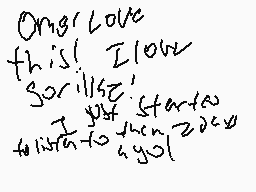 Omg! Love
this! I love
Gorillaz!
I just started
to listen to them 2 days
ago!